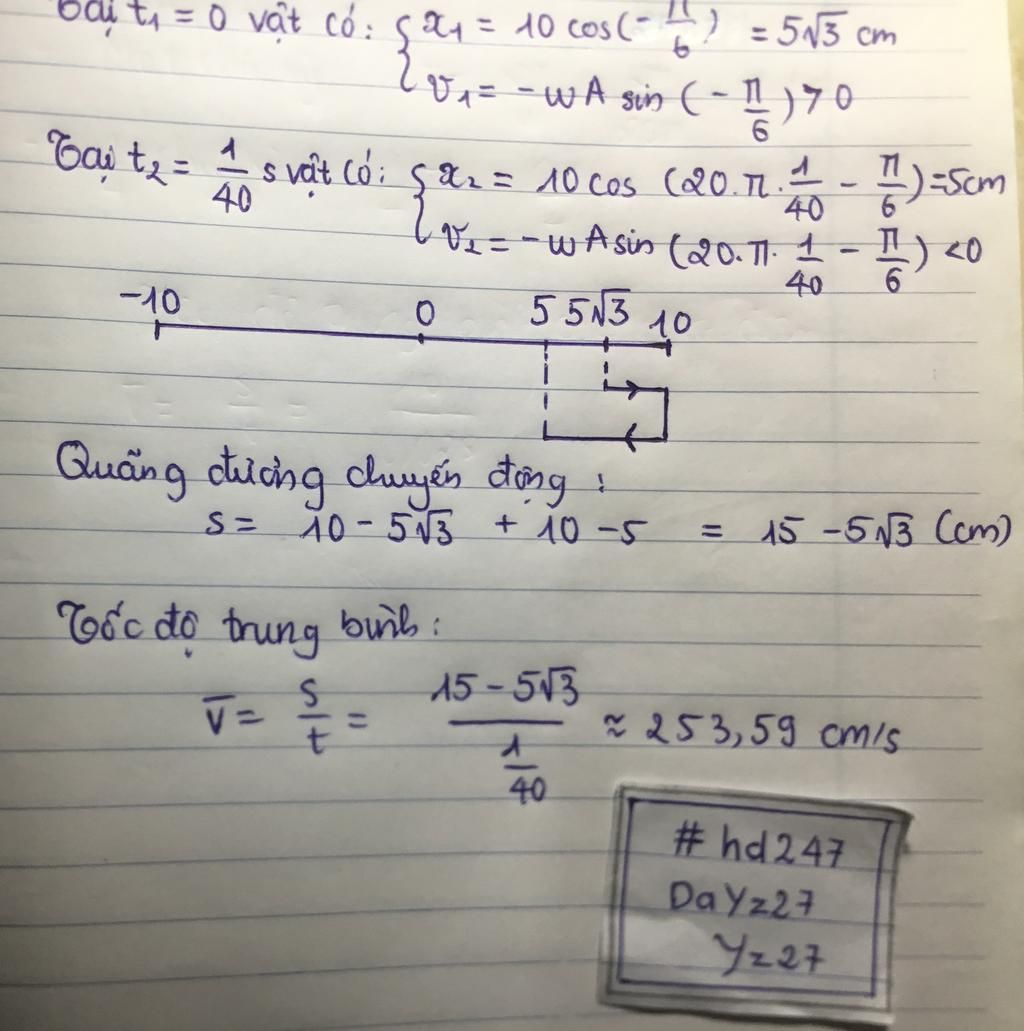 Tại t₁ = 0 vật có: { x₁ = 10 cos(-π/6) = 5√3 cm
v₁ = -wA sin (-π/6) > 0
Tại t₂ = 1/40 s vật có: { x₂ = 10 cos (20.π.1/40 - π/6) = 5cm
v₂ = -wA sin (20.π.1/40 - π/6) < 0
-10 0 5 5√3 10
Quãng đường chuyến động :
s = 10 - 5√3 + 10 - 5 = 15 - 5√3 (cm)
Tốc độ trung bình :
v̅ = s/t = (15 - 5√3)/(1/40) ≈ 253,59 cm/s
# hd247
DaYz27
Yz27